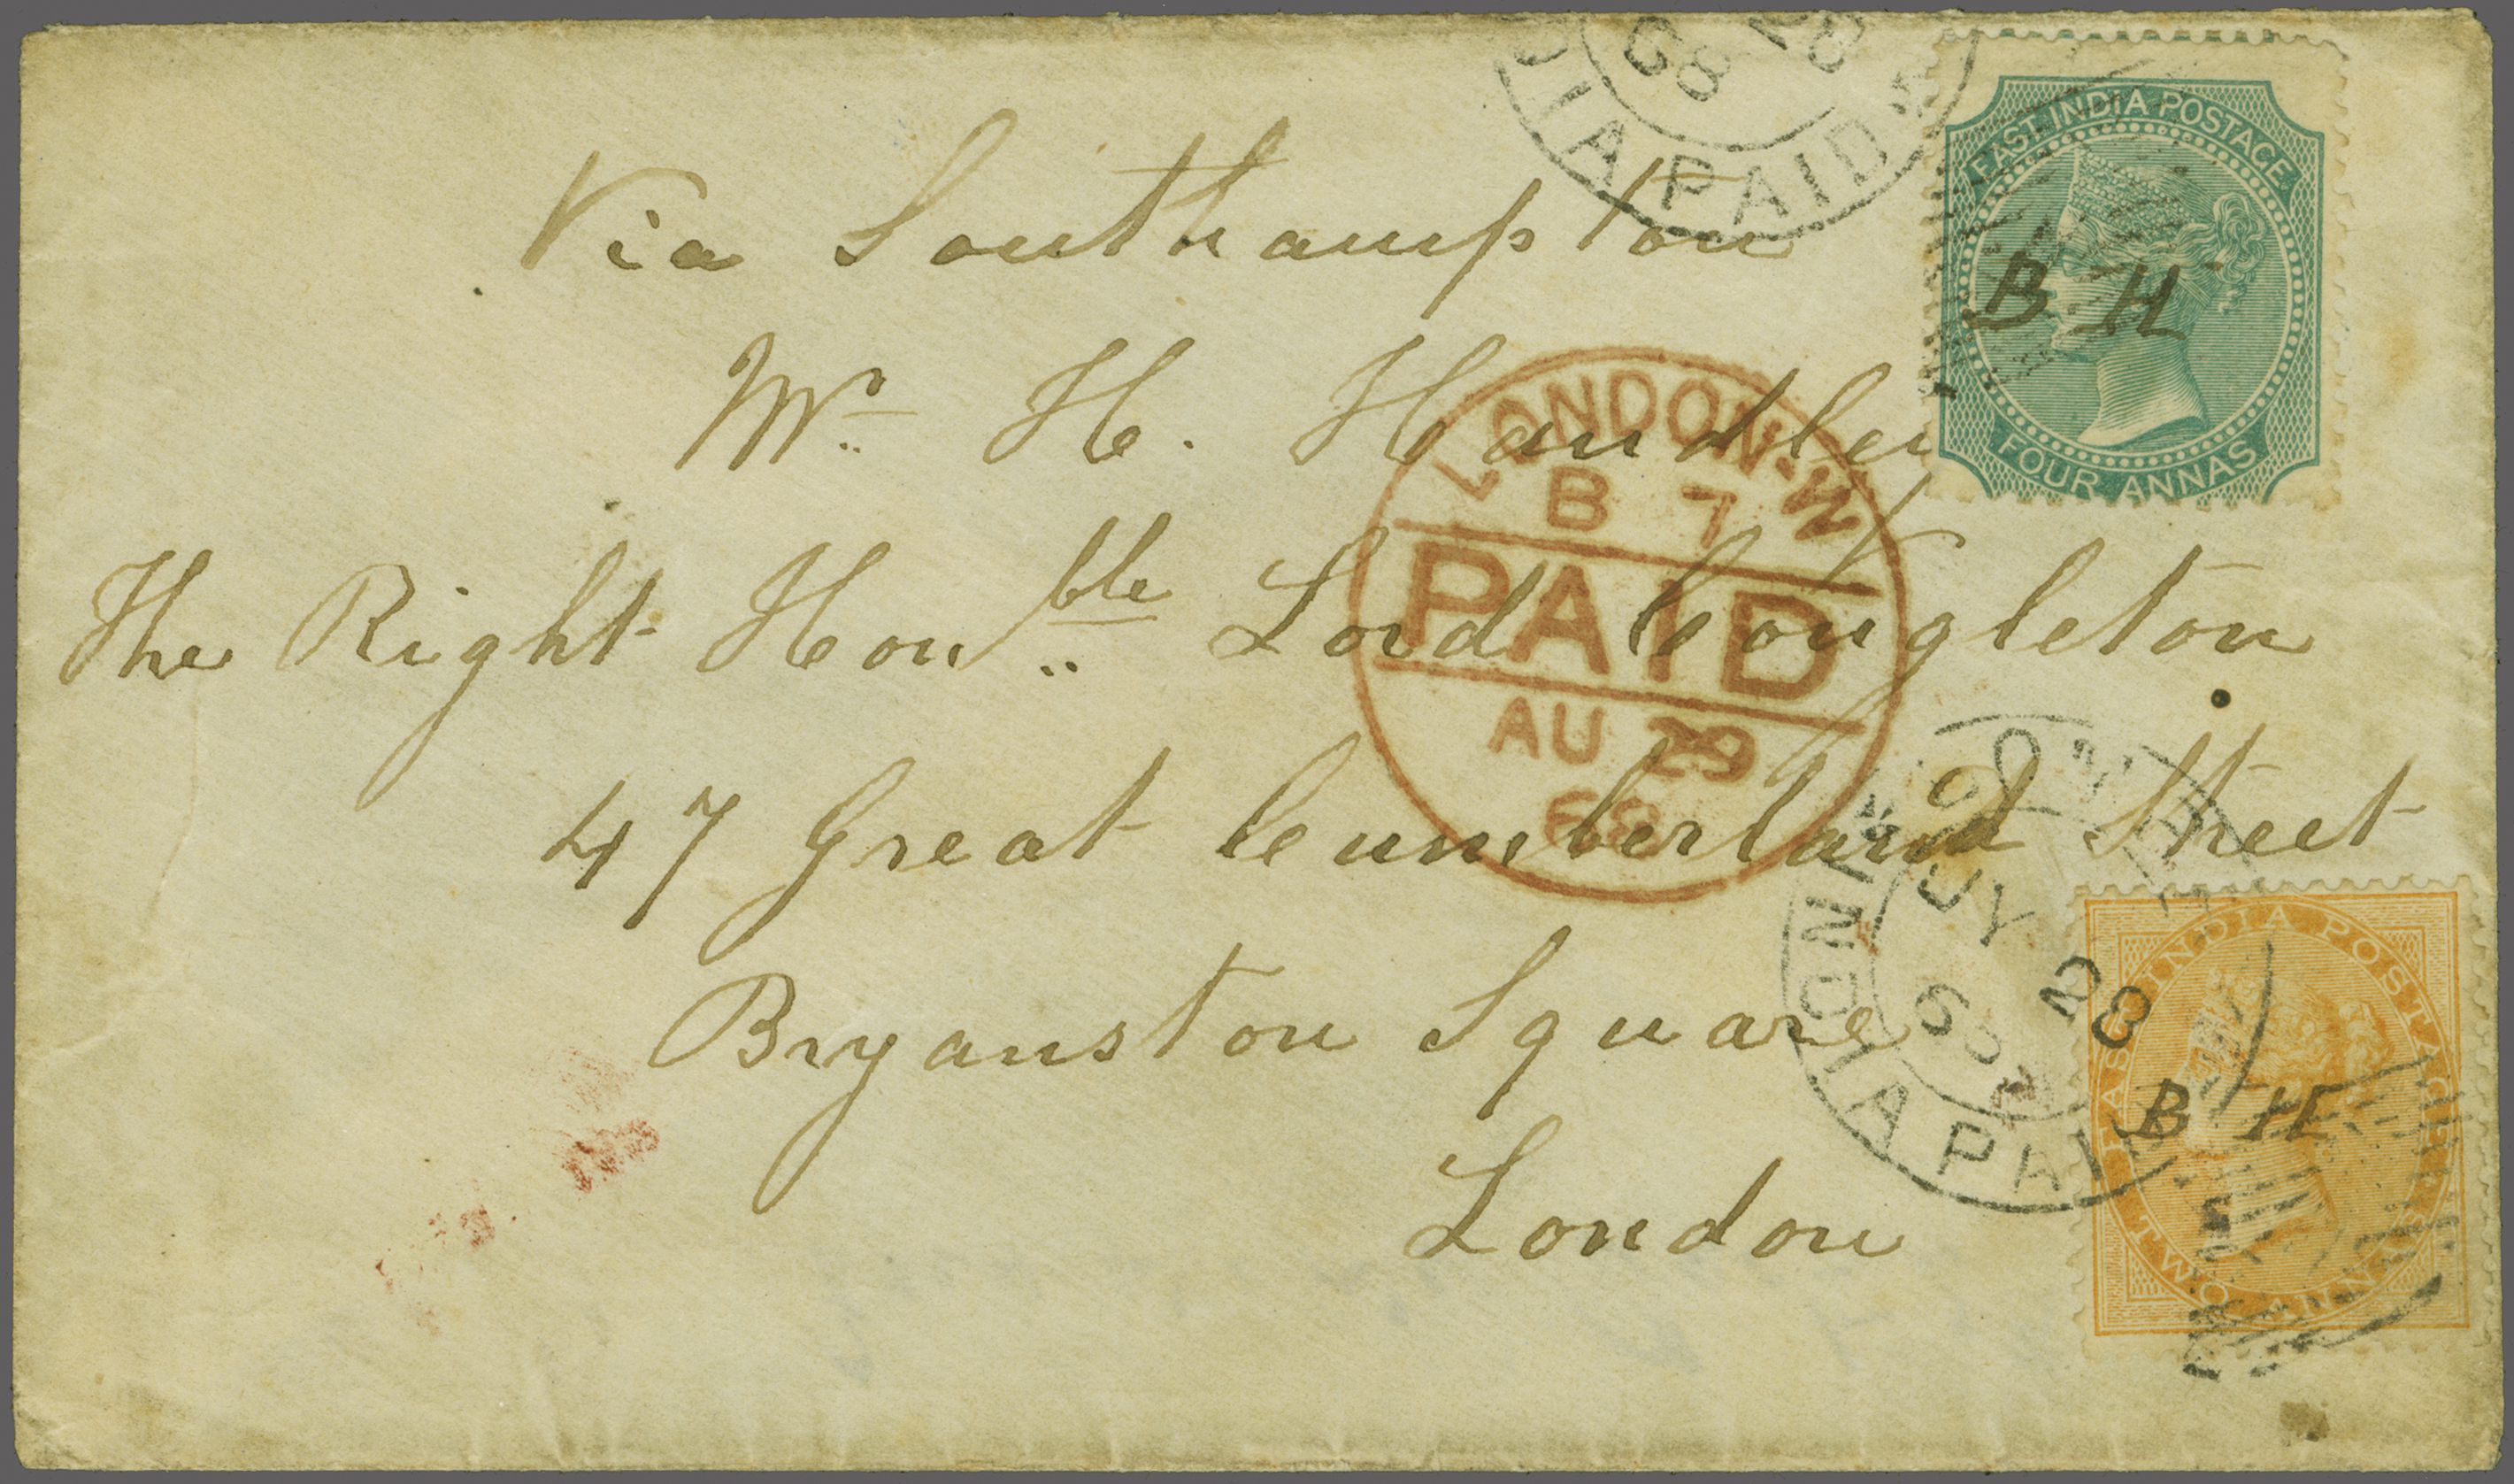 Via Southampton
Mr. H. Handley
The Right Honble Lord Congleton
47 Great Cumberland Street
Bryanston Square
London
68 28
INDIA PAID
EAST INDIA POSTAGE
B H
FOUR ANNAS
LONDON·W
B 7
PAID
AU 29
68
JY 28
INDIA PAID
EAST INDIA POSTAGE
B H
TWO ANNAS